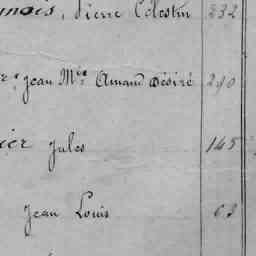 Pierre Célestin 232
Jean Mie Amand Désiré 290
Jules 145
Jean Louis 63